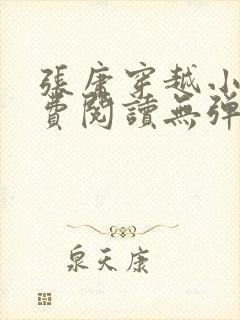 張唐穿越小
費閱讀無彈
泉天康